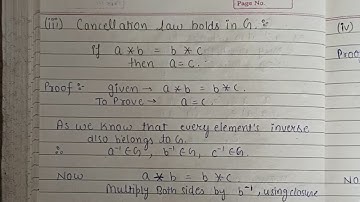 Page No.
(iii) Cancellation law holds in G :-
(iv)
if a * b = b * c
then a = c.
Proof :- given → a * b = b * c.
Proo
To Prove → a = c.
As we know that every element's inverse
also belongs to G.
∴ a⁻¹ ∈ G, b⁻¹ ∈ G, c⁻¹ ∈ G.
Now a * b = b * c.
Multiply Both sides by b⁻¹, using closure